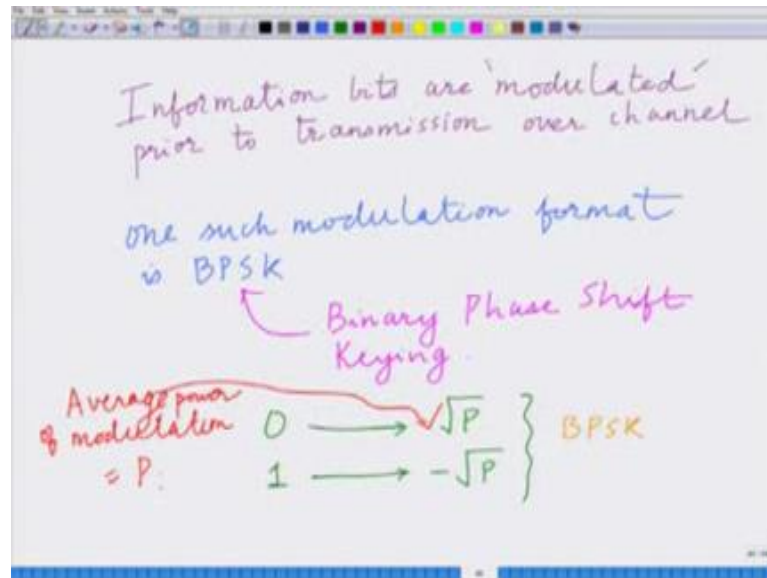 Information bits are 'modulated'
prior to transmission over channel
one such modulation format
is BPSK
Binary Phase Shift
Keying.
Average power
of modulation
= P.
0 → √P
1 → -√P
} BPSK